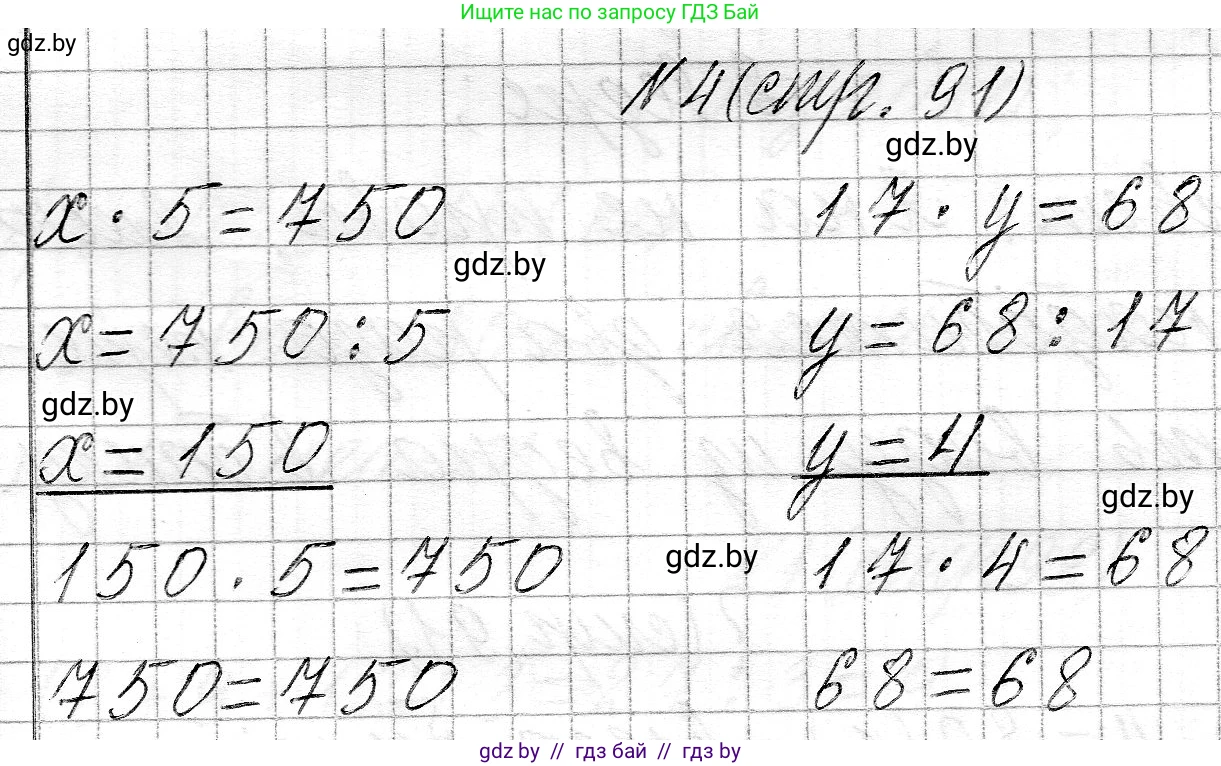 Ищите нас по запросу ГДЗ Бай
gdz.by
N 4 (стр. 91)
gdz.by
x · 5 = 750
17 · y = 68
gdz.by
x = 750 : 5
y = 68 : 17
gdz.by
x = 150
y = 4
gdz.by
150 · 5 = 750
gdz.by
17 · 4 = 68
750 = 750
68 = 68
gdz.by // гдз бай // гдз by